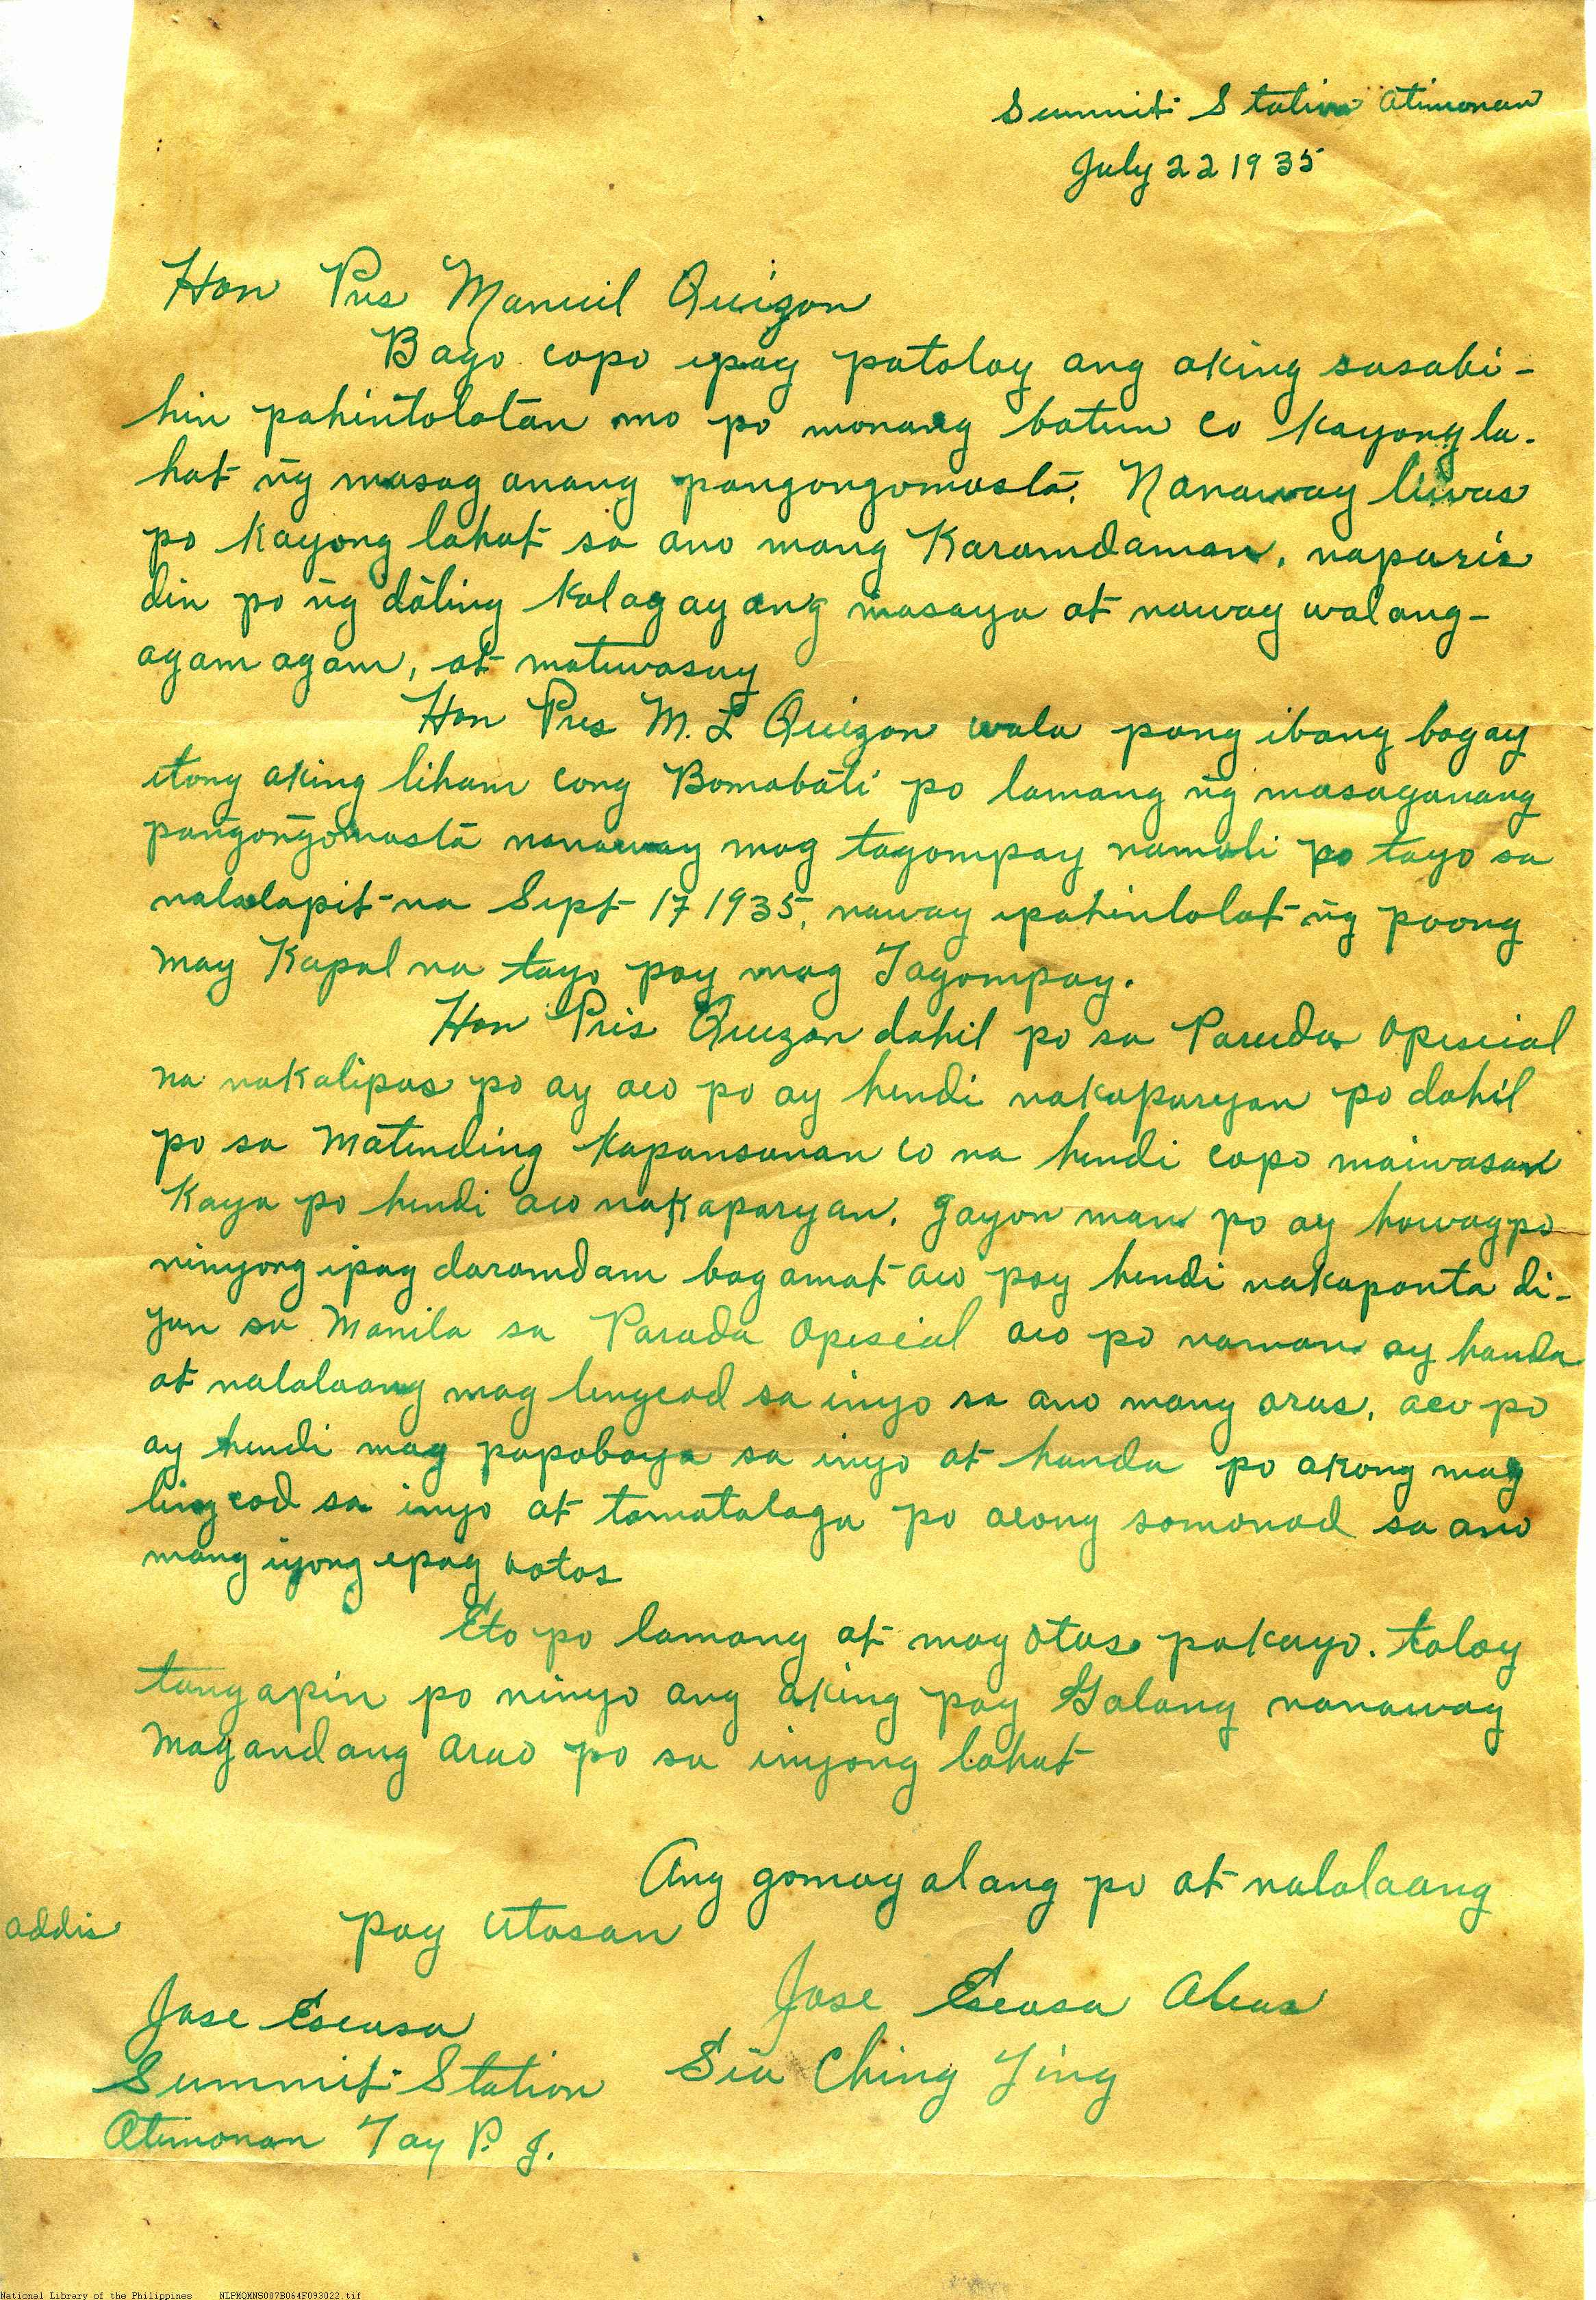 Summit Station Atimonan
July 22 1935
Hon Pres Manuil Quizon
Bago copo epag patoloy ang aking sasabi-
hin pahintolotan mo po monang batiin co kayong la-
hat ng masaganang pangongomosta. Nanaway liwas
po kayong lahat sa ano mang karamdaman, naparis
din po ng dating kalagayang masaya at naway walang-
agam agam, at matuwasay
Hon Pres M. L Quizon wala pong ibang bagay
itong aking liham cong Bomabati po lamang ng masaganang
pangongomosta nanaway mag tagompay namuli po tayo sa
nalalapit na Sept 17 1935, naway epahintolot ng poong
may Kapal na tayo poy mag Tagompay.
Hon Pris Quezon dahil po sa Parada Opisial
na nakalipas po ay aco po ay hendi nakaparyan po dahil
po sa matinding kapansanan co na hendi copo maiwasan
kaya po hendi aco nakaparyan. gayon man po ay howag po
ninyong ipag daramdam bagamat aco poy hendi nakaponta di-
yan sa Manila sa Parada Opisial aco po naman ay handa
at nalalaang mag lengcod sa inyo sa ano mang oras, aco po
ay hendi mag papabaya sa inyo at handa po akong mag
lingcod sa inyo at tomatalaga po acong somonod sa ano
mang iyong epag ootos
Eto po lamang at mag otus pakayo. toloy
tangapin po ninyo ang aking pag Galang nanaway
magandang arao po sa inyong lahat
Ang gomagalang po at nalalaang
pag utosan
addis
Jose Escasa
Jose Escasa Alias
Summit Station
Sia Ching Ying
Atimonan Tay P. I.
National Library of the Philippines NLPMQMNS007B064F093022.tif